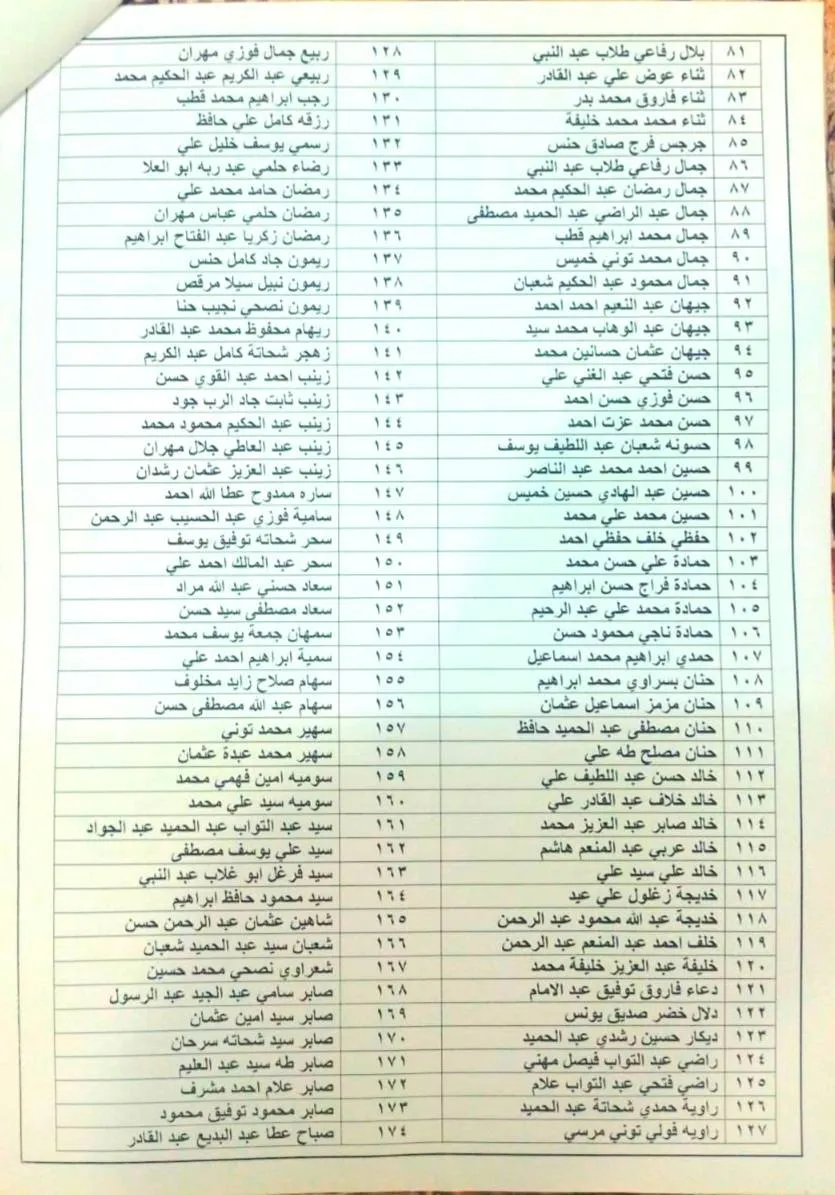 ٨١ بلال رفاعي طلاب عبد النبي
٨٢ ثناء عوض علي عبد القادر
٨٣ ثناء فاروق محمد بدر
٨٤ ثناء محمد محمد خليفة
٨٥ جرجس فرج صادق حنس
٨٦ جمال رفاعي طلاب عبد النبي
٨٧ جمال رمضان عبد الحكيم محمد
٨٨ جمال عبد الراضي عبد الحميد مصطفى
٨٩ جمال محمد ابراهيم قطب
٩٠ جمال محمد توني خميس
٩١ جمال محمود عبد الحكيم شعبان
٩٢ جيهان عبد النعيم احمد احمد
٩٣ جيهان عبد الوهاب محمد سيد
٩٤ جيهان عثمان حسانين محمد
٩٥ حسن فتحي عبد الغني علي
٩٦ حسن فوزي حسن احمد
٩٧ حسن محمد عزت احمد
٩٨ حسونه شعبان عبد اللطيف يوسف
٩٩ حسين احمد محمد عبد الناصر
١٠٠ حسين عبد الهادي حسين خميس
١٠١ حسين محمد علي محمد
١٠٢ حفظي خلف حفظي احمد
١٠٣ حمادة علي حسن محمد
١٠٤ حمادة فراج حسن ابراهيم
١٠٥ حمادة محمد علي عبد الرحيم
١٠٦ حمادة ناجي محمود حسن
١٠٧ حمدي ابراهيم محمد اسماعيل
١٠٨ حنان بسراوي محمد ابراهيم
١٠٩ حنان مزمز اسماعيل عثمان
١١٠ حنان مصطفى عبد الحميد حافظ
١١١ حنان مصلح طه علي
١١٢ خالد حسن عبد اللطيف علي
١١٣ خالد خلاف عبد القادر علي
١١٤ خالد صابر عبد العزيز محمد
١١٥ خالد عربي عبد المنعم هاشم
١١٦ خالد علي سيد علي
١١٧ خديجة زغلول علي عيد
١١٨ خديجة عبد الله محمود عبد الرحمن
١١٩ خلف احمد عبد المنعم عبد الرحمن
١٢٠ خليفة عبد العزيز خليفة محمد
١٢١ دعاء فاروق توفيق عبد الامام
١٢٢ دلال خضر صديق يونس
١٢٣ ديكار حسين رشدي عبد الحميد
١٢٤ راضي عبد التواب فيصل مهني
١٢٥ راضي فتحي عبد التواب علام
١٢٦ راوية حمدي شحاتة عبد الحميد
١٢٧ راويه فولي توني مرسي
١٢٨ ربيع جمال فوزي مهران
١٢٩ ربيعي عبد الكريم عبد الحكيم محمد
١٣٠ رجب ابراهيم محمد قطب
١٣١ رزقه كامل علي حافظ
١٣٢ رسمي يوسف خليل علي
١٣٣ رضاء حلمي عبد ربه ابو العلا
١٣٤ رمضان حامد محمد علي
١٣٥ رمضان حلمي عباس مهران
١٣٦ رمضان زكريا عبد الفتاح ابراهيم
١٣٧ ريمون جاد كامل حنس
١٣٨ ريمون نبيل سيلا مرقص
١٣٩ ريمون نصحي نجيب حنا
١٤٠ ريهام محفوظ محمد عبد القادر
١٤١ زهجر شحاتة كامل عبد الكريم
١٤٢ زينب احمد عبد القوي حسن
١٤٣ زينب ثابت جاد الرب جود
١٤٤ زينب عبد الحكيم محمود محمد
١٤٥ زينب عبد العاطي جلال مهران
١٤٦ زينب عبد العزيز عثمان رشدان
١٤٧ ساره ممدوح عطا الله احمد
١٤٨ سامية فوزي عبد الحسيب عبد الرحمن
١٤٩ سحر شحاته توفيق يوسف
١٥٠ سحر عبد المالك احمد علي
١٥١ سعاد حسني عبد الله مراد
١٥٢ سعاد مصطفى سيد حسن
١٥٣ سمهان جمعة يوسف محمد
١٥٤ سمية ابراهيم احمد علي
١٥٥ سهام صلاح زايد مخلوف
١٥٦ سهام عبد الله مصطفى حسن
١٥٧ سهير محمد توني
١٥٨ سهير محمد عبدة عثمان
١٥٩ سوميه امين فهمي محمد
١٦٠ سوميه سيد علي محمد
١٦١ سيد عبد التواب عبد الحميد عبد الجواد
١٦٢ سيد علي يوسف مصطفى
١٦٣ سيد فرغل ابو غلاب عبد النبي
١٦٤ سيد محمود حافظ ابراهيم
١٦٥ شاهين عثمان عبد الرحمن حسن
١٦٦ شعبان سيد عبد الحميد شعبان
١٦٧ شعراوي نصحي محمد حسين
١٦٨ صابر سامي عبد الجيد عبد الرسول
١٦٩ صابر سيد امين عثمان
١٧٠ صابر سيد شحاته سرحان
١٧١ صابر طه سيد عبد العليم
١٧٢ صابر علام احمد مشرف
١٧٣ صابر محمود توفيق محمود
١٧٤ صباح عطا عبد البديع عبد القادر